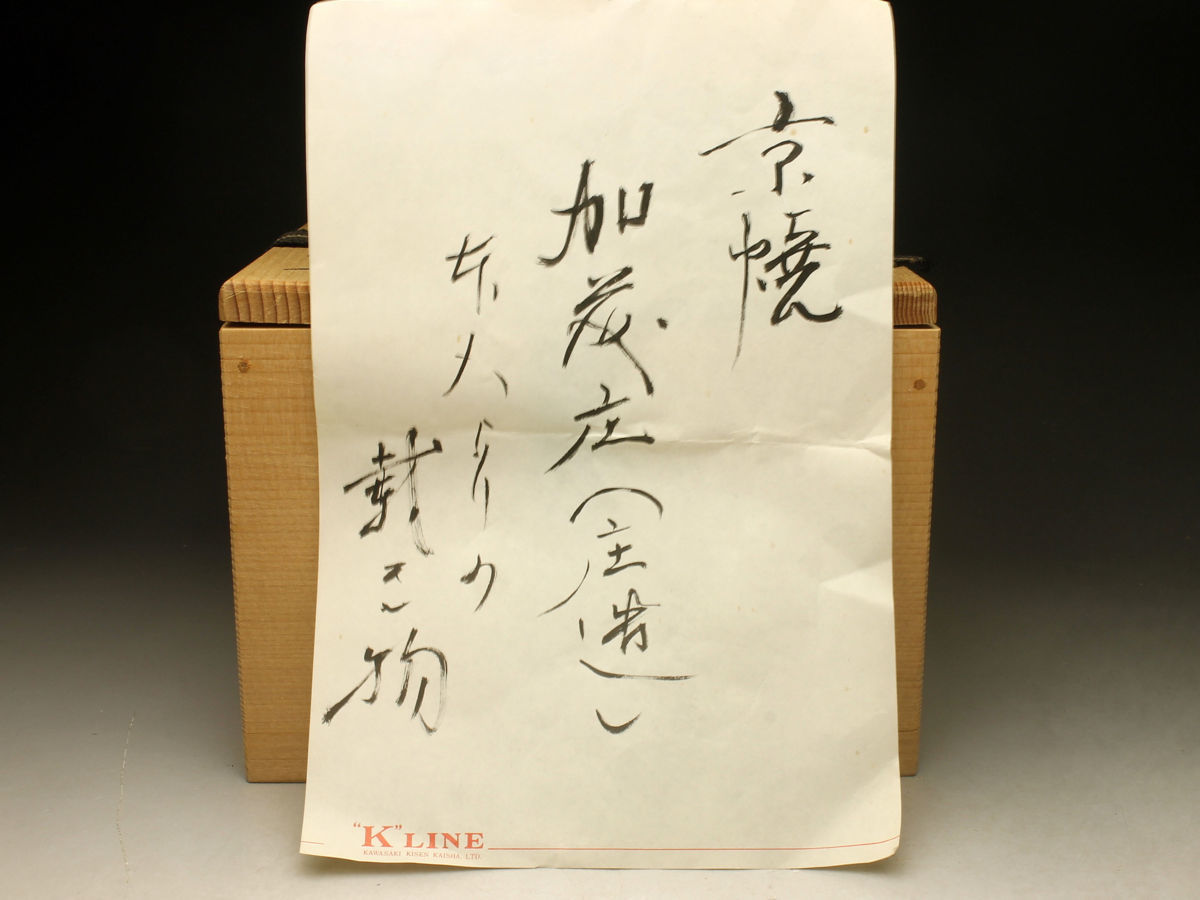 京焼
加茂庄（庄造）
本人よりの
戴き物
"K" LINE
KAWASAKI KISEN KAISHA, LTD.